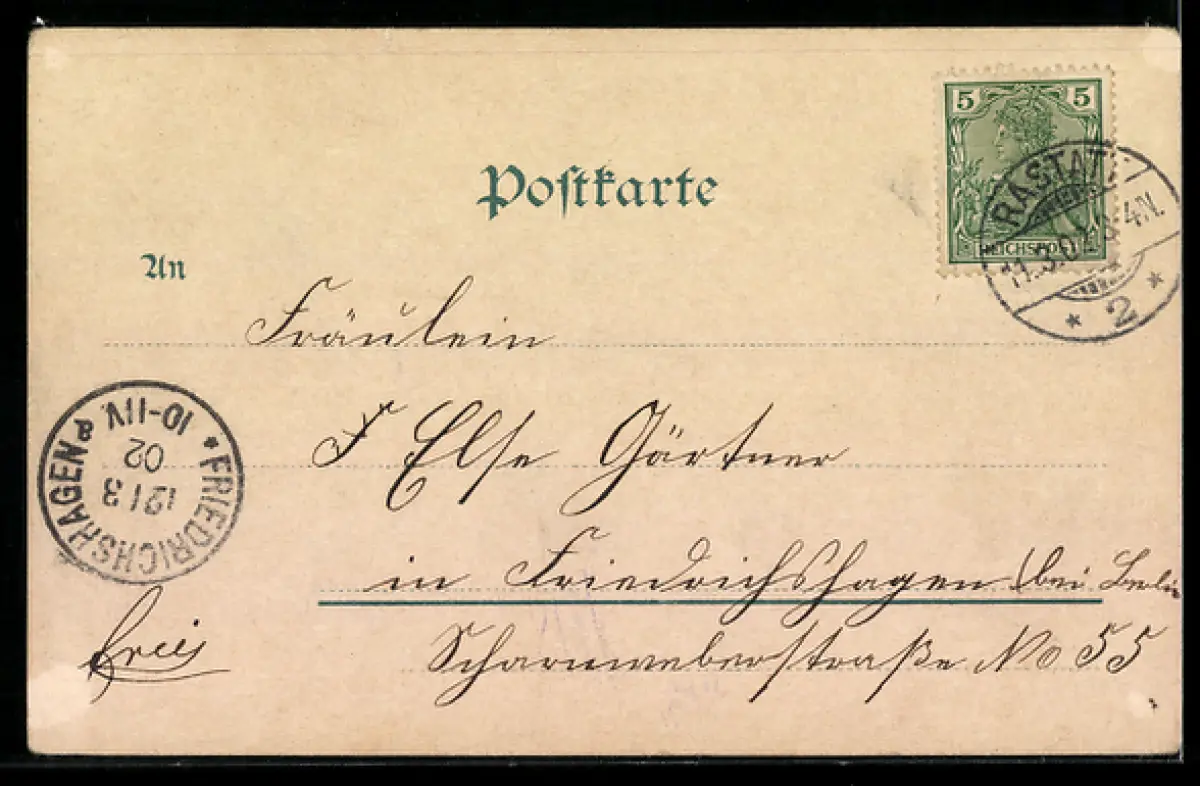 Postkarte
5 5
REICHSPOST
RASTATT
11.3.02. 3-4N.
* 2 *
An
Fräulein
Else Gärtner
in Friedrichshagen bei Berlin
Scharnweberstraße No 55
* FRIEDRICHSHAGEN
12/3
02